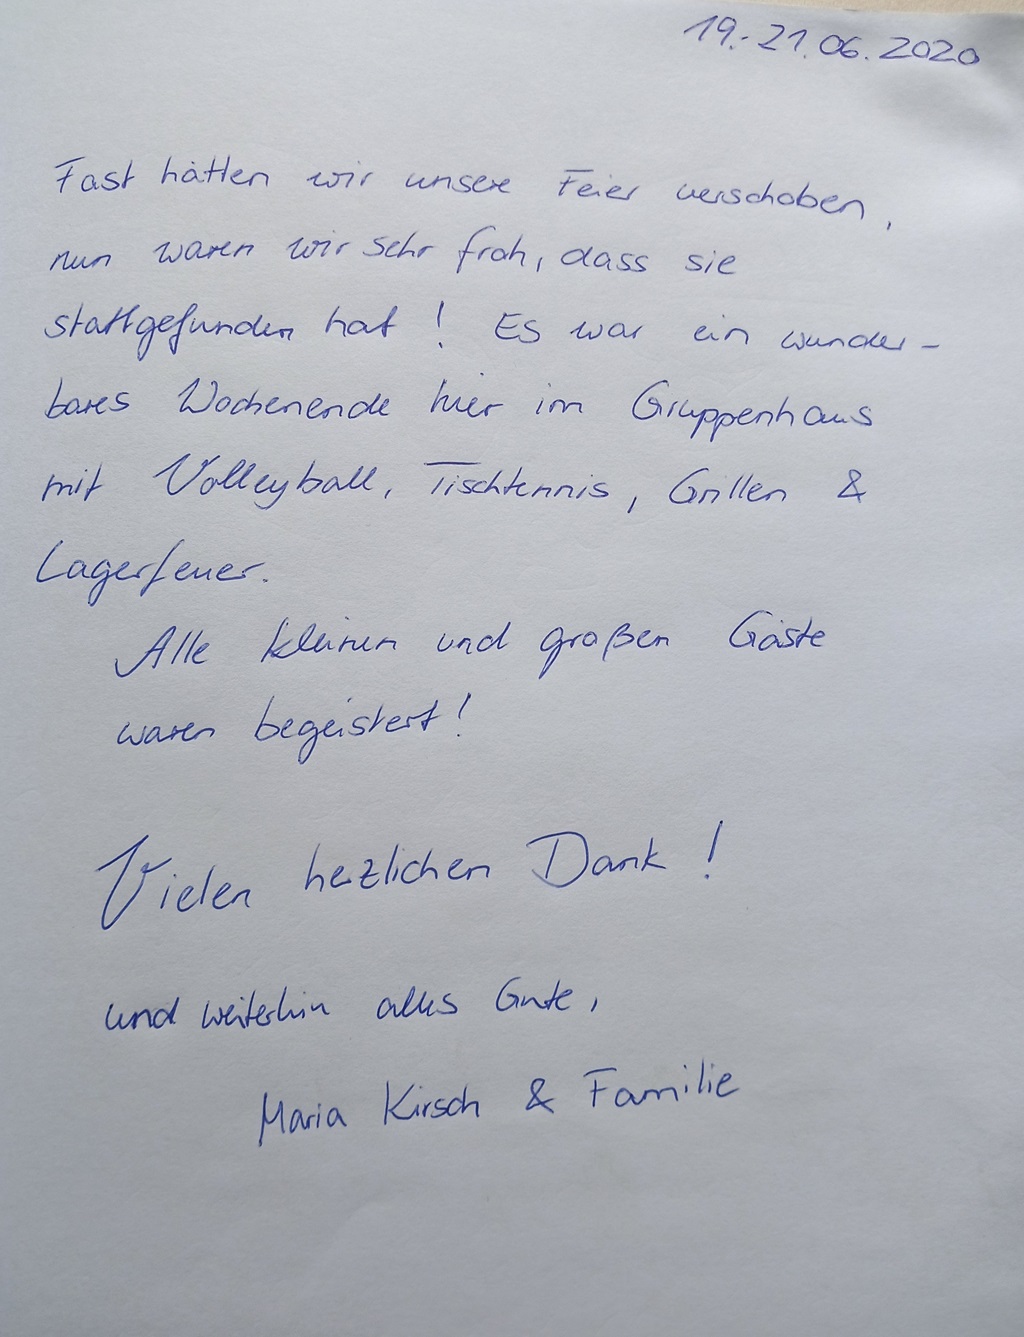 19.-21.06.2020
Fast hätten wir unsere Feier verschoben,
nun waren wir sehr froh, dass sie
stattgefunden hat! Es war ein wunder-
bares Wochenende hier im Gruppenhaus
mit Volleyball, Tischtennis, Grillen &
Lagerfeuer.
Alle kleinen und großen Gäste
waren begeistert!
Vielen herzlichen Dank!
und weiterhin alles Gute,
Maria Kirsch & Familie